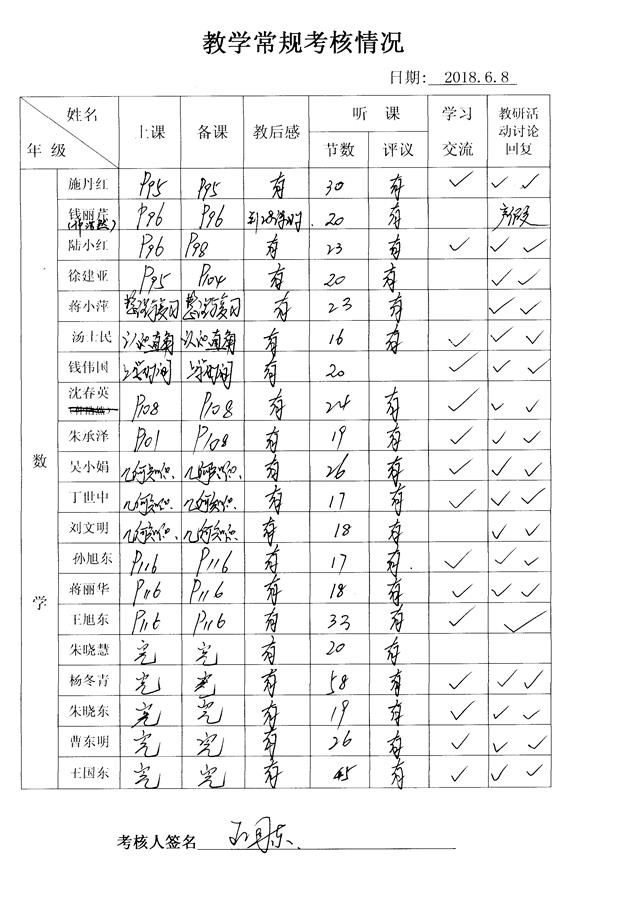 教学常规考核情况
日期: 2018.6.8
姓名 年级 上课 备课 教后感 听课 节数 评议 学习交流 教研活动讨论回复
数学
施丹红 P95 P95 有 30 有 ✓ ✓ ✓
钱丽芹 P96 P96 20 有
陆小红 P96 P98 有 23 有 ✓ ✓ ✓
徐建亚 P95 P104 有 20 有 ✓ ✓
蒋小萍 整理与复习 整理与复习 有 23 有 ✓ ✓
汤士民 认识直角 认识直角 有 16 有 ✓ ✓ ✓
钱伟国 有 20 ✓ ✓ ✓
沈春英 P108 P108 有 24 有 ✓ ✓ ✓
朱承泽 P101 P108 有 19 有 ✓ ✓ ✓
吴小娟 几何知识 几何知识 有 26 有 ✓ ✓ ✓
丁世中 几何知识 几何知识 有 17 有 ✓ ✓ ✓
刘文明 几何知识 几何知识 有 18 有 ✓ ✓
孙旭东 P116 P116 有 17 有 ✓ ✓ ✓
蒋丽华 P116 P116 有 18 有 ✓ ✓ ✓
王旭东 P116 P116 有 33 有 ✓ ✓
朱晓慧 完 完 有 20 有
杨冬青 完 完 有 58 有 ✓ ✓ ✓
朱晓东 完 完 有 19 有 ✓ ✓ ✓
曹东明 完 完 有 26 有 ✓ ✓ ✓
王国东 完 完 有 45 有 ✓ ✓ ✓
考核人签名 王国东